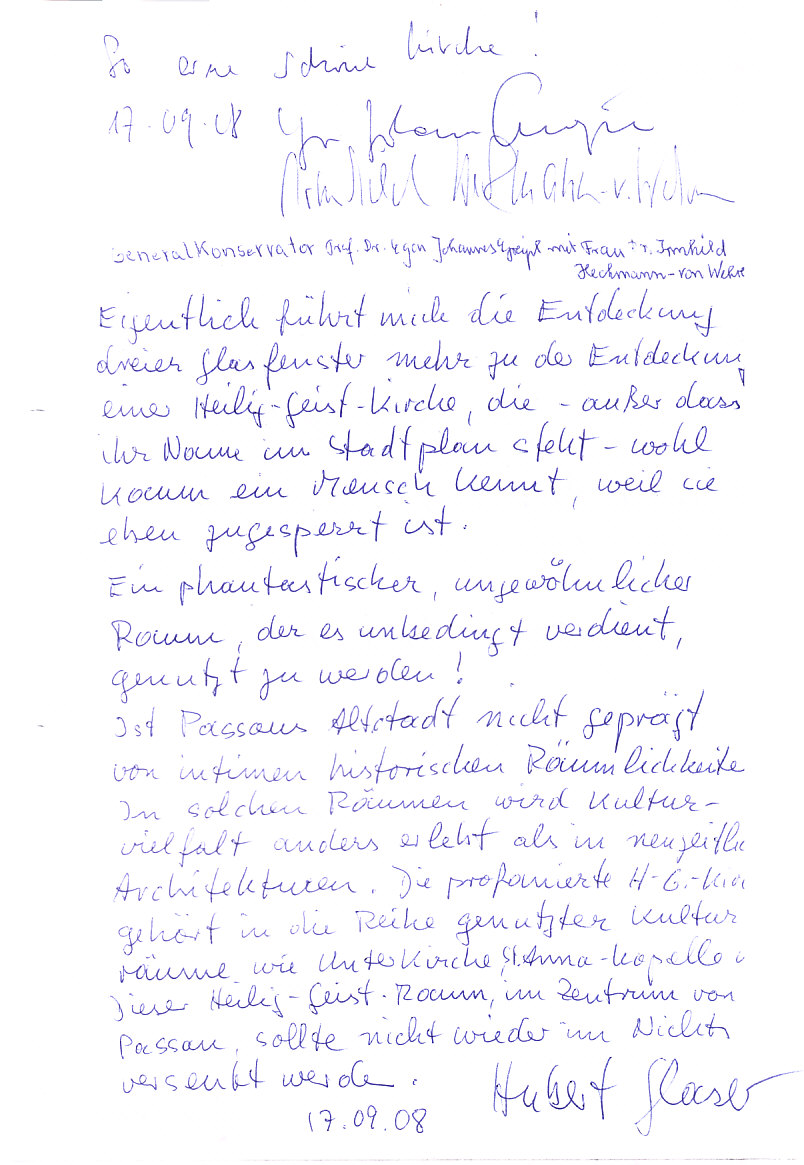 So eine schöne Kirche!
17.09.08
Generalkonservator Prof. Dr. Egon Johannes Greipl mit Frau Dr. Irmhild
Heckmann-von Wehre
Eigentlich führt mich die Entdeckung
dreier Glasfenster mehr zu der Entdeckung
einer Heilig-Geist-Kirche, die - außer dass
ihr Name im Stadtplan steht - wohl
kaum ein Mensch kennt, weil sie
eben zugesperrt ist.
Ein phantastischer, ungewöhnlicher
Raum, der es unbedingt verdient,
genutzt zu werden!
Ist Passaus Altstadt nicht geprägt
von intimen historischen Räumlichkeite
In solchen Räumen wird Kultur-
vielfalt anders erlebt als in neuzeitli
Architekturen. Die profanierte H-G.-Kir
gehört in die Reihe genutzter Kultur
räume, wie Unterkirche, St. Anna-Kapelle
Dieser Heilig-Geist-Raum, im Zentrum von
Passau, sollte nicht wieder im Nichts
versenkt werden.
Hubert Glaser
17.09.08